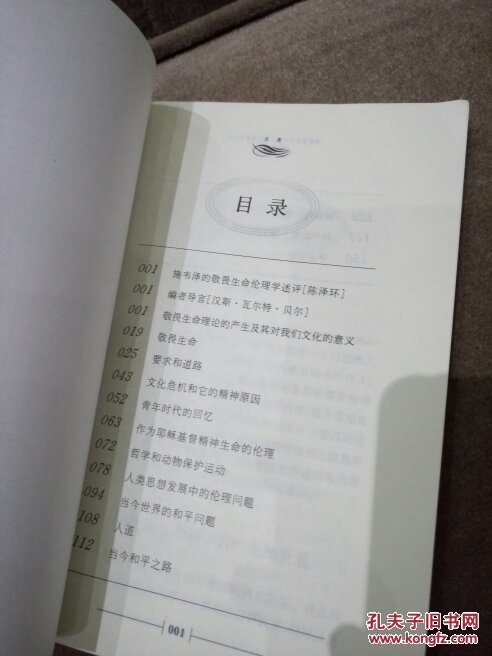 目录
目 录
001 施韦泽的敬畏生命伦理学述评[陈泽环]
001 编者导言[汉斯·瓦尔特·贝尔]
001 敬畏生命理论的产生及其对我们文化的意义
019 敬畏生命
025 要求和道路
043 文化危机和它的精神原因
052 青年时代的回忆
063 作为耶稣基督精神生命的伦理
072 哲学和动物保护运动
078 人类思想发展中的伦理问题
094 当今世界的和平问题
108 人道
112 当今和平之路
001
孔夫子旧书网
www.kongfz.com